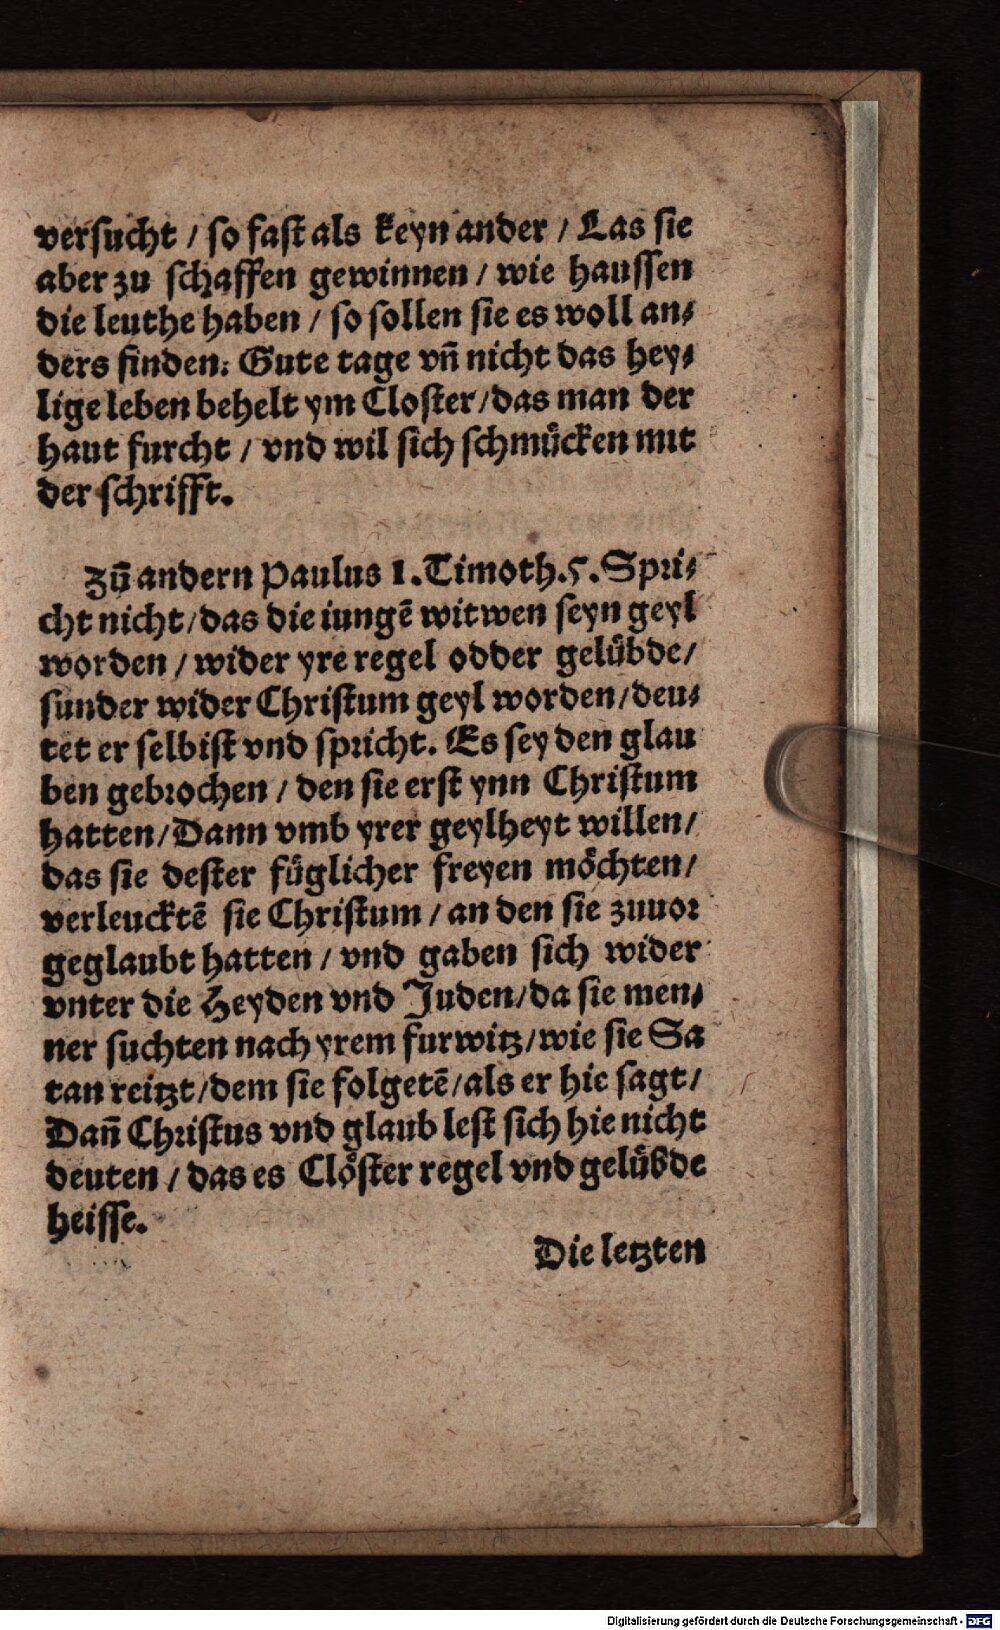 versucht / so fast als keyn ander / Las sie
aber zu schaffen gewinnen / wie haussen
die leuthe haben / so sollen sie es woll an⸗
ders finden: Gute tage vn̄ nicht das hey⸗
lige leben behelt ym Closter / das man der
haut furcht / vnd wil sich schmuͤcken mit
der schrifft.
Zū andern Paulus 1. Timoth. 5. Spri⸗
cht nicht / das die iungē witwen seyn geyl
worden / wider yre regel odder geluͤbde /
sunder wider Christum geyl worden / deu⸗
tet er selbist vnd spricht. Es sey den glau
ben gebrochen / den sie erst ynn Christum
hatten / Dann vmb yrer geylheyt willen /
das sie dester fuͤglicher freyen moͤchten /
verleucktē sie Christum / an den sie zuuor
geglaubt hatten / vnd gaben sich wider
vnter die Heyden vnd Juden / da sie men⸗
ner suchten nach yrem furwitz / wie sie Sa
tan reitzt / dem sie folgetē / als er hie sagt /
Dan̄ Christus vnd glaub lest sich hie nicht
deuten / das es Cloͤster regel vnd geluͤbde
heisse.
Die letzten
Digitalisierung gefördert durch die Deutsche Forschungsgemeinschaft - DFG